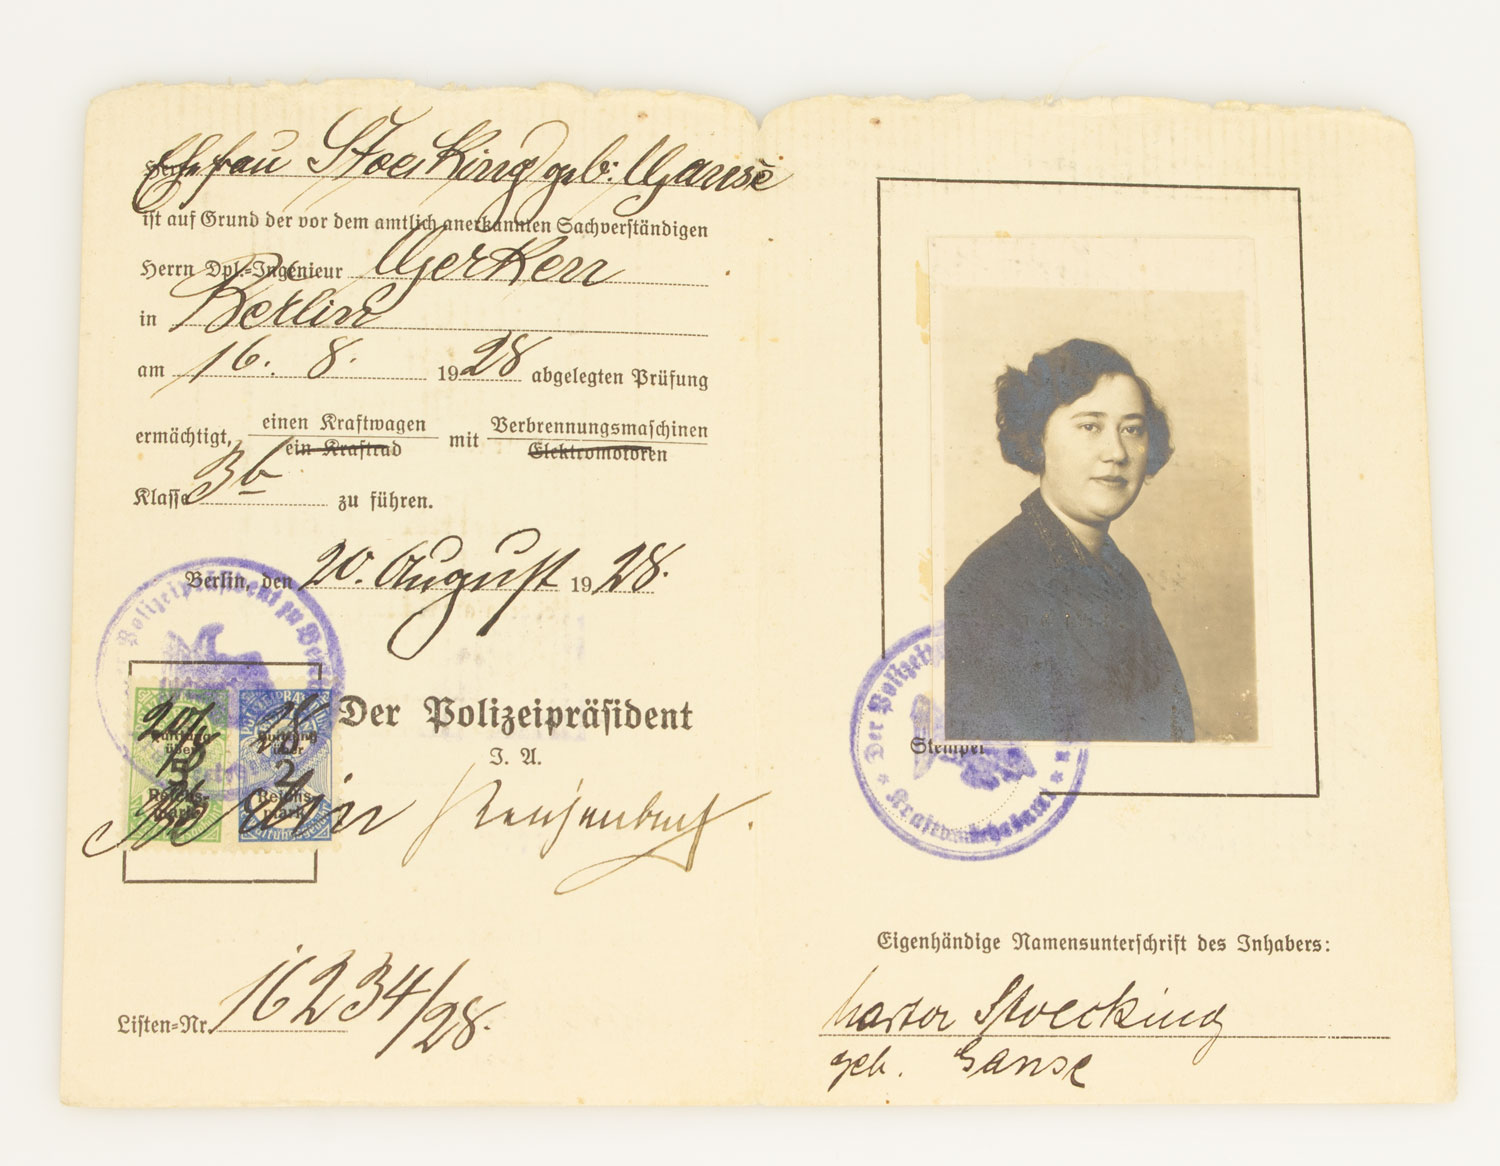 Ehefrau Stoecking geb. Ganse
ist auf Grund der vor dem amtlich anerkannten Sachverständigen
Herrn Dpl.-Ingenieur Gerken
in Berlin
am 16. 8. 1928 abgelegten Prüfung
ermächtigt, einen Kraftwagen mit Verbrennungsmaschinen
ein Kraftrad Elektromotoren
Klasse 3b zu führen.
Berlin, den 20. August 1928.
Der Polizeipräsident zu Berlin
Der Polizeipräsident
I. A.
Quittung über 5 Reichsmark
Quittung über 2 Reichsmark
Listen-Nr. 16234/28.
Stempel
Der Polizei
Kraftverkehrsamt
Eigenhändige Namensunterschrift des Inhabers:
Stoecking
geb. Ganse